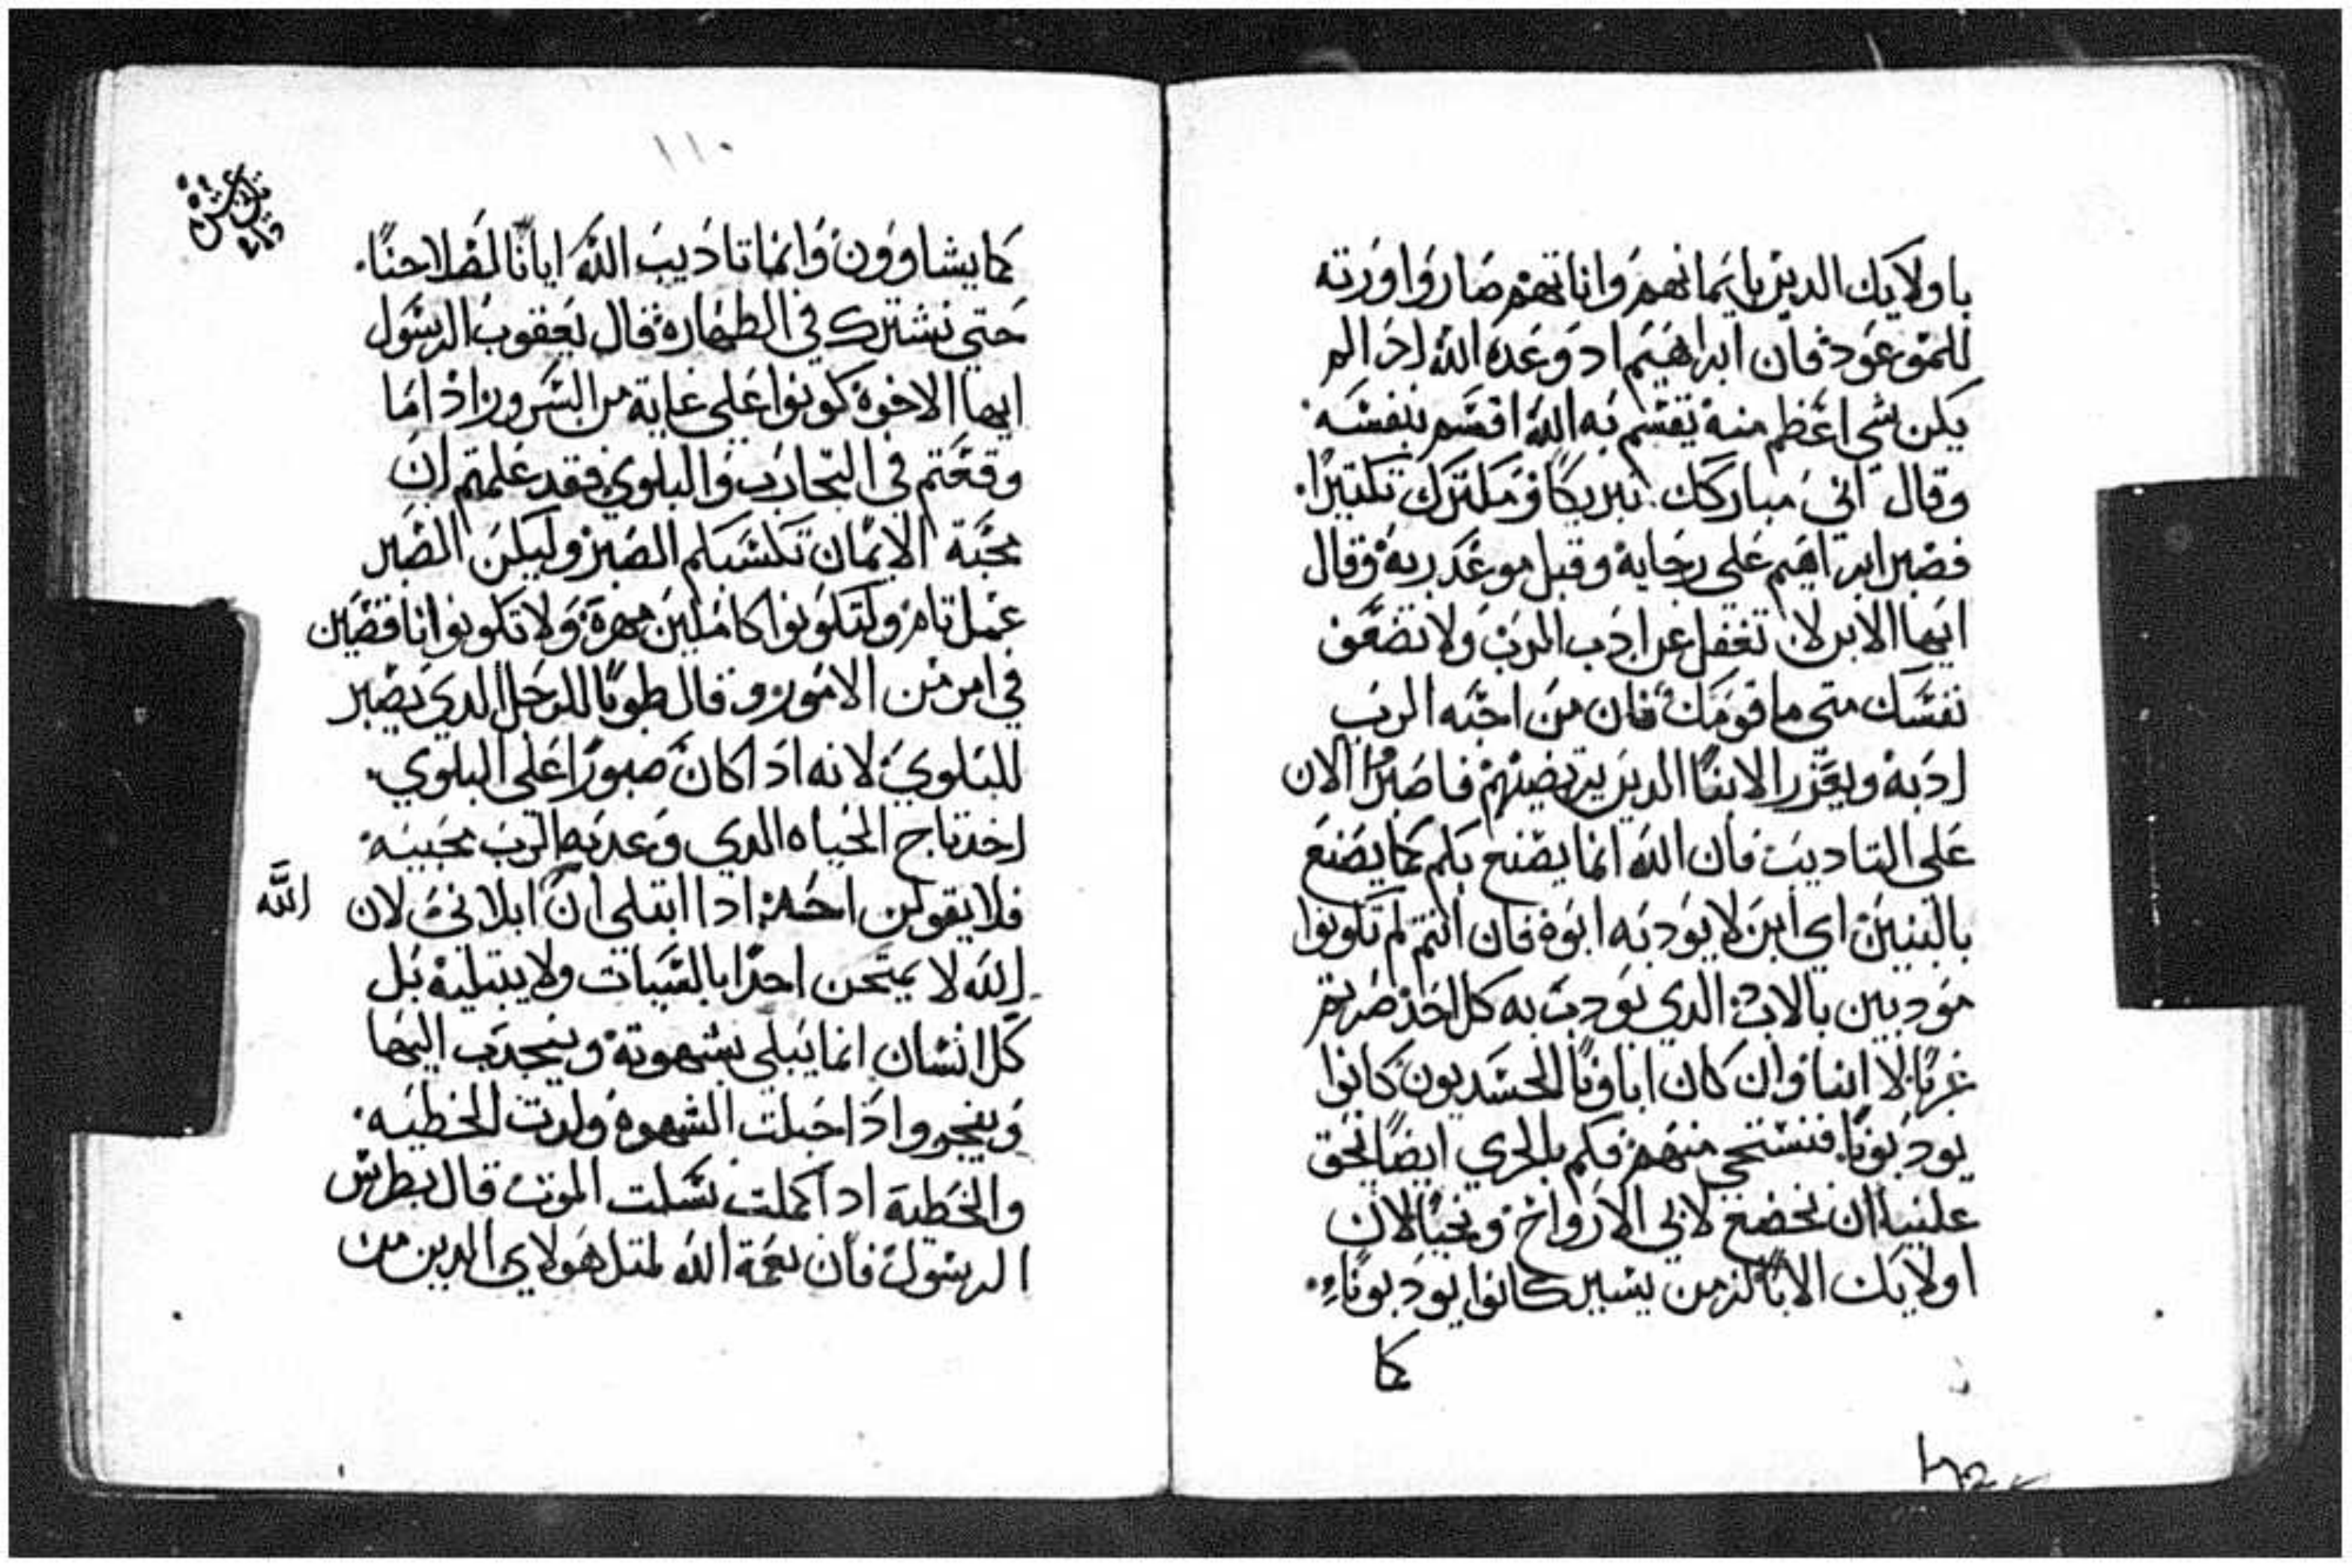 باولايك الدين بايمانهم واناتهم صاروا ورته
للموعود فان ابراهيم اد وعده الله اد الم
يكن شي اعظم منه يقسم به الله اقسم بنفسه
وقال اني مباركك تبريكا ومكترك تكتيرا
فصبر ابراهيم علي رجايه وقبل موعد ربه وقال
ايها الابن لا تغفل عن ادب الرب ولا تضعف
نفسك متي ما قومك فان من احبه الرب
ادبه ويعزر الابنا الدين يرتضيهم فاصبرا الان
علي التاديب فان الله انما يصنع بكم كما يصنع
بالبنين اي ابن لا يودبه ابوه فان انتم لم تكونوا
مودبين بالادب الدي يودب به كل احد صرتم
غربا لا ابنا وان كان اباونا الجسديون كانوا
يودبونا فنستحي منهم فكم بالحري ايضا يحق
علينا ان نخضع لابي الارواح ونحيا لان
اولايك الابا لزمن يسير كانوا يودبونا
كما
١١٠
كما يشاوون وانما تاديب الله ايانا لصلاحنا
حتي نشترك في الطهارة قال يعقوب الرسول
ايها الاخوة كونوا علي غاية من السرور اد اما
وقعتم في التجارب والبلوي فقد علمتم ان
محبة الايمان تكسبكم الصبر وليكن الصبر
عمل تام ولتكونوا كاملين مهرة ولا تكونوا ناقصين
في امر من الامور وقال طوبا للرجل الدي يصبر
للبلوي لانه ادا كان صبورا علي البلوي
اخد تاج الحياه الدي وعد به الرب محبيه
فلا يقولن احد ادا ابتلي ان الله ابلاني لان
الله لا يمتحن احدا بالسيات ولا يبتليه بل
كل انسان انما يبلي بشهوته وينجدب اليها
وينجر وادا حبلت الشهوة ولدت الخطيه
والخطية ادا كملت نسلت الموت قال بطرس
الرسول فان نعمة الله لمتل هولاي الدين من